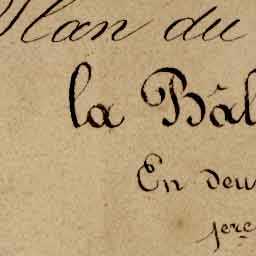 Plan du
la Bâl
En deu
1ere